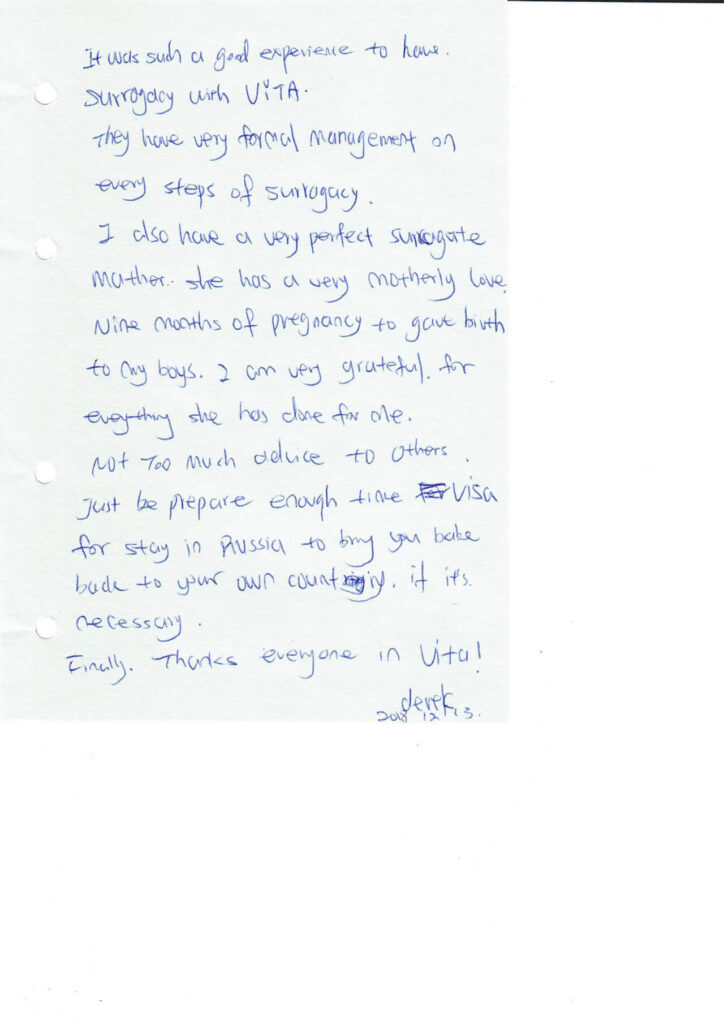 It was such a good experience to have.
surrogacy with ViTA.
They have very formal management on
every steps of surrogacy.
I also have a very perfect surrogate
mather. she has a very motherly love.
Nine months of pregnancy to gave birth
to my boys. I am very grateful. for
everything she has done for me.
Not Too much advice to others.
Just be prepare enough time visa
for stay in Russia to bring you babe
back to your own country. if it's.
necessary.
Finally. Thanks everyone in Vita!
derek
2018 12 13.